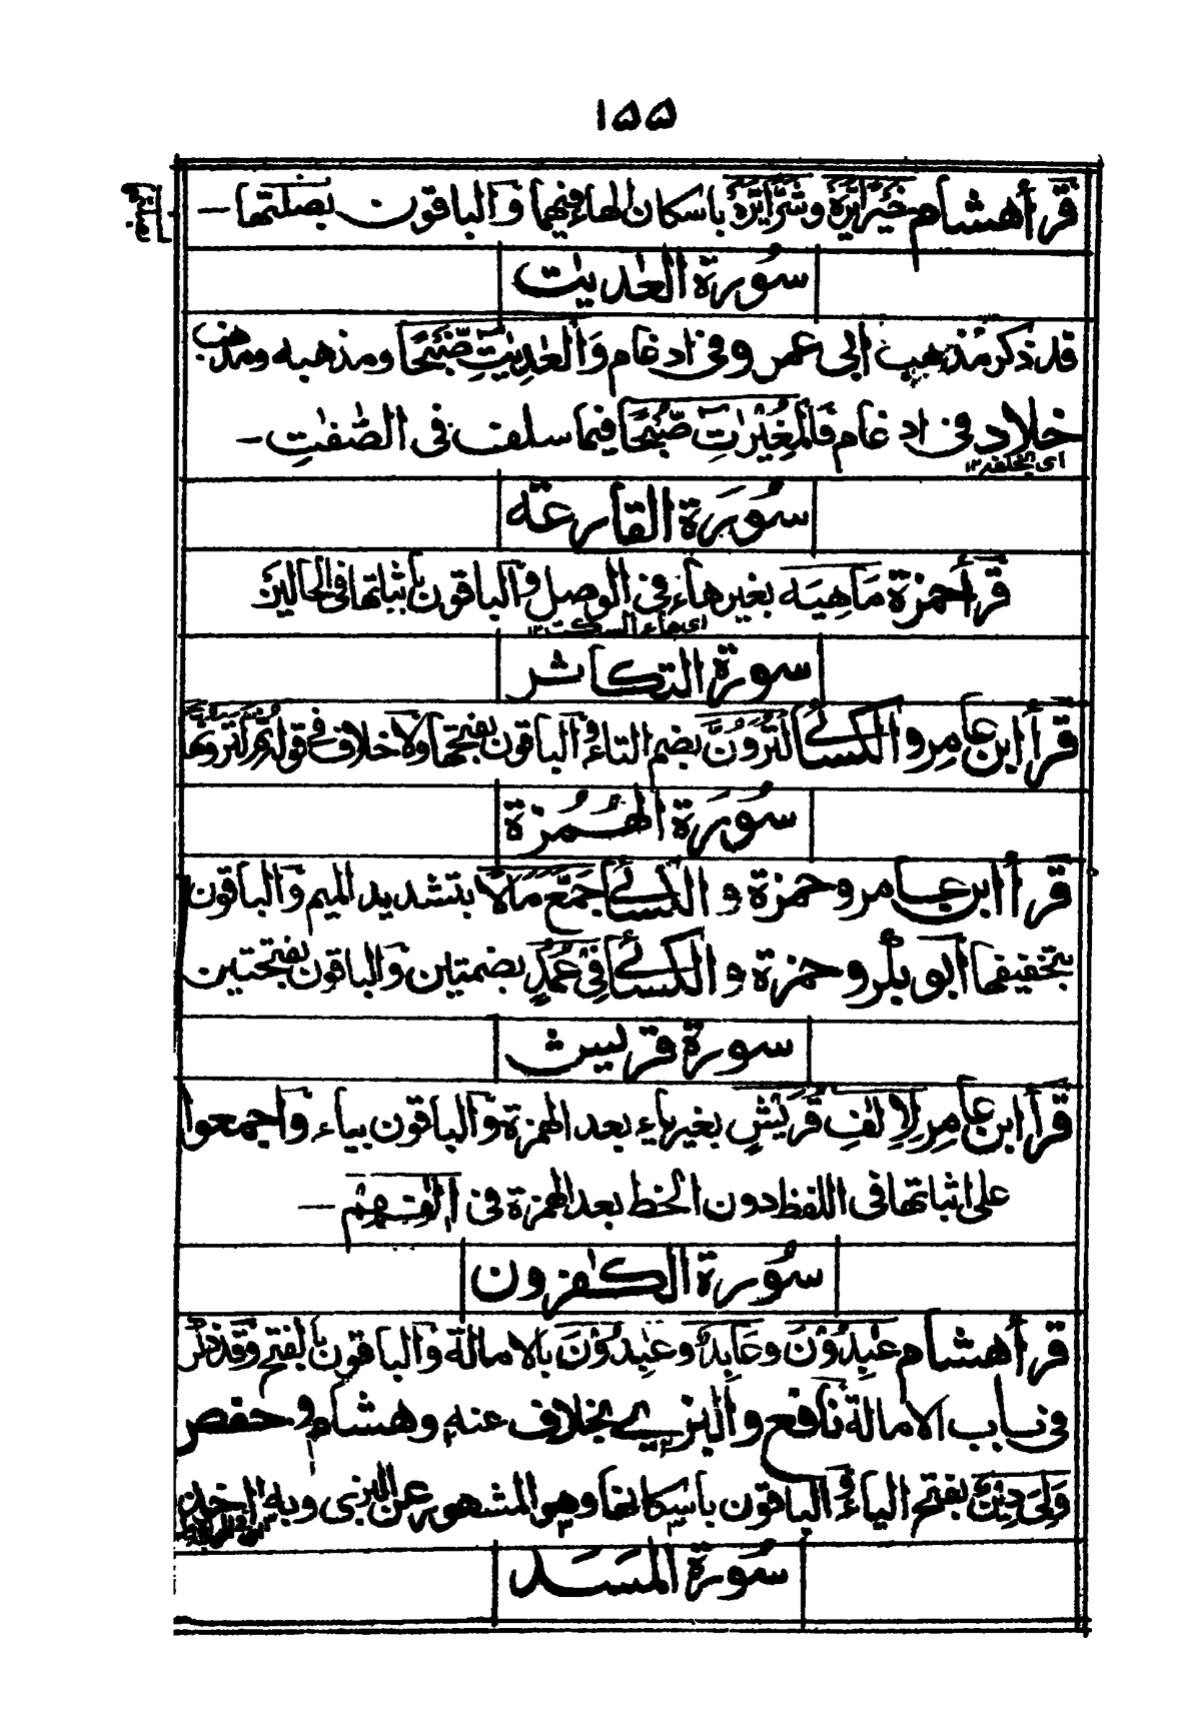 ١٥٥
قرأ هشام خَيْرًا يَّرَهْ وشَرًّا يَّرَهْ باسكان الهاء فيهما والباقون بصلتها ـ
سُورة العٰديٰت
قد ذكر مذهب ابى عمرو فى ادغام وَالْعٰدِيٰتِ ضَّبْحًا ومذهبه ومذهب
خلاد فى ادغام فَالْمُغِيْرٰتِ صُّبْحًا فيما سلف فى الصّٰفٰتِ ـ
اى بخلف ١٢
سُورَة القارعة
قرأ حمزة مَاهِيَه بغير هاء فى الوصل والباقون باثباتها فى الحالين
اى هاء السكت ١٢
سورة التكاثر
قرأ ابن عامر والكسائى لَتُرَوُنَّ بضم التاء والباقون بفتحها ولا خلاف فى قوله ثم لترونها
سُورَة الهُمُزة
قرأ ابن عامر وحمزة والكسائى جَمَّعَ مَالًا بتشديد الميم والباقون
بتخفيفها ابو بكر وحمزة والكسائى فِىْ عُمُدٍ بضمتين والباقون بفتحتين
سورة قريش
قرأ ابن عامر لِاِلٰفِ قُرَيْشٍ بغير ياء بعد الهمزة والباقون بياء واجمعوا
على اثباتها فى اللفظ دون الخط بعد الهمزة فى اٖلٰفِهِمْ ـ
سُورة الكٰفرون
قرأ هشام عٰبِدُوْنَ وعَابِدٌ وعٰبِدُوْنَ بالامالة والباقون بالفتح وقد ذكر
فى باب الامالة نافع والبزى بخلاف عنه وهشام وحفص
وَلِىَ دِيْنِ بفتح الياء والباقون باسكانها وهو المشهور عن البزى وبه اٰخذ
سُورة المَسَد